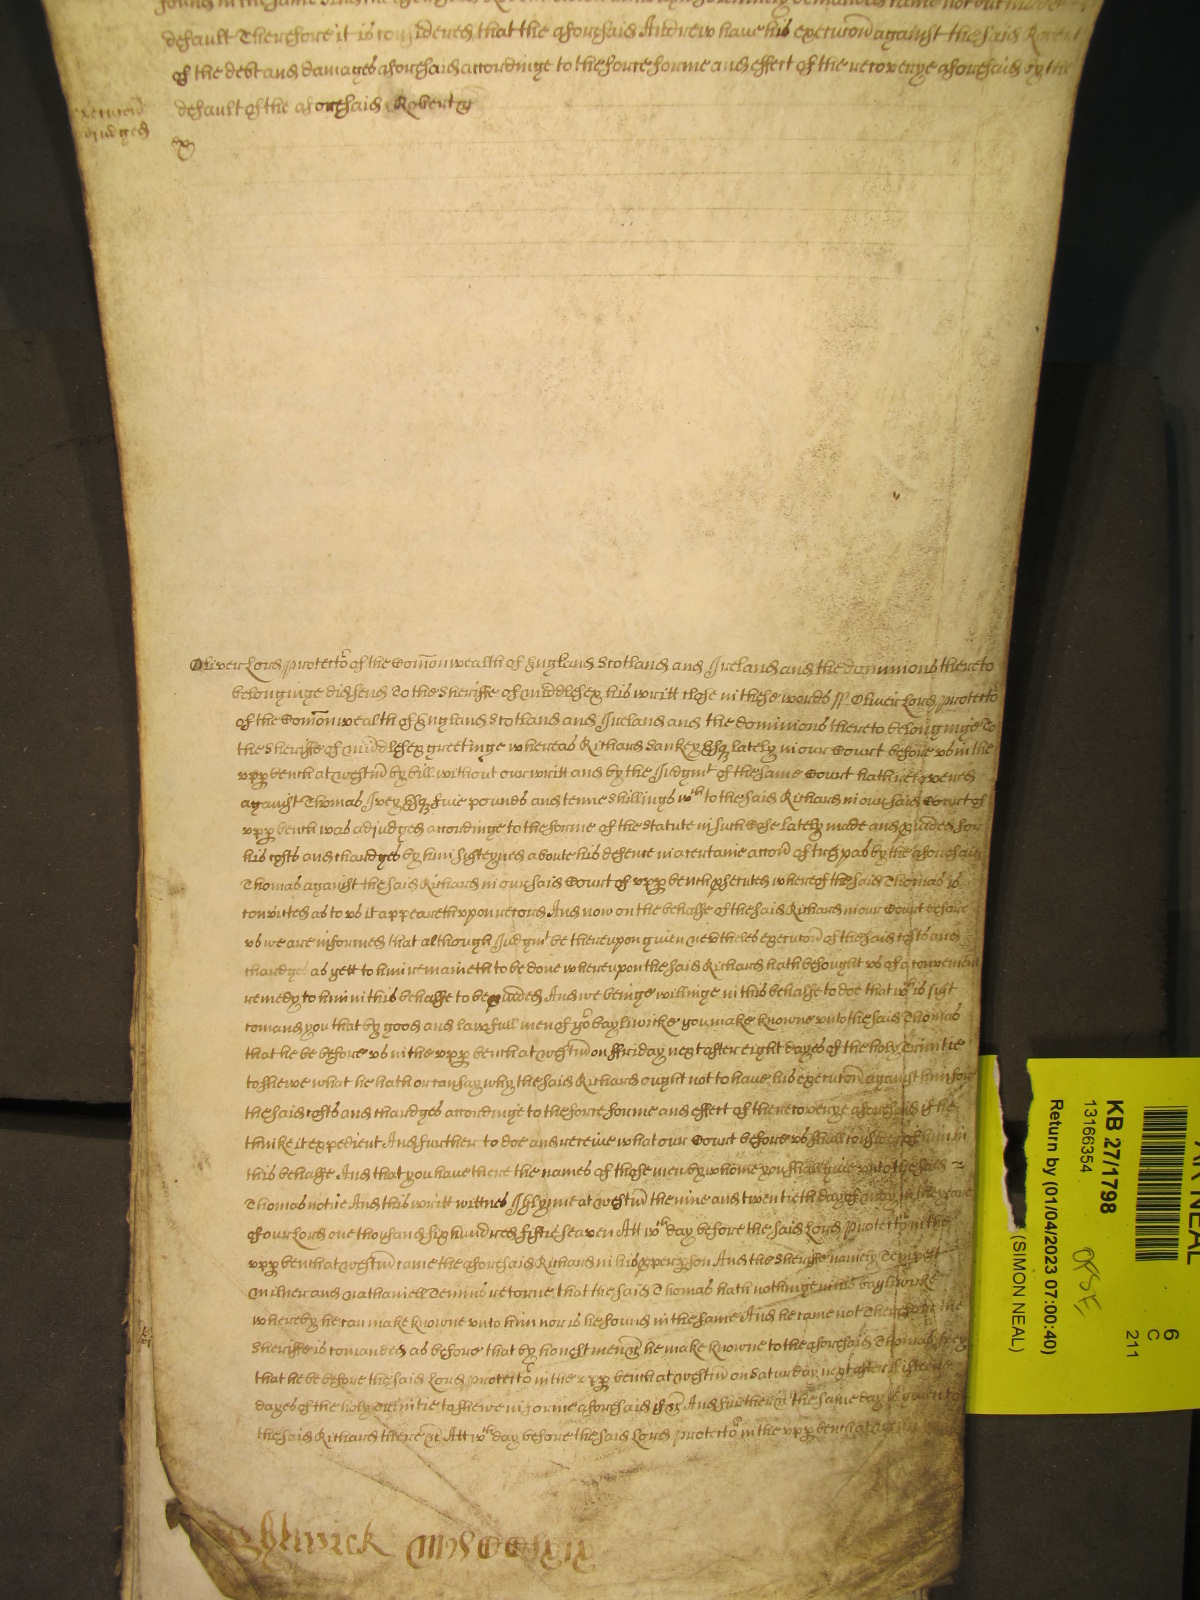 default Therefore it is considered that the aforesaid Andrew have his execucōn against the said Robert
of the debt and damages aforesaid accordinge to the force forme and effect of the recoverye aforesaid by the
default of the aforesaid Robert &c
adjudged
Oliver Lord Protector of the Comonwealth of England Scotland and Ireland and the dominions thereto
belonginge did send to the Sheriffe of Middlesex his writt close in these words ss Oliver Lord Protector
of the Comonwealth of England Scotland and Ireland and the dominions thereto belonginge To
the Sheriffe of Middlesex greetinge whereas Richard Sankey Esq lately in our Court before us in the
upp bench at westm by bill without our writt and by the Judgmt of the same Court hath recovered
against Thomas Ivey Esq five pounds and tenne shillings wch to the said Richard in our said Court of
upp bench was adjudged accordinge to the forme of the statute in such Case lately made and pvided for
his costs and chardges by him susteyned aboute his defence in a certaine accon of trespas by the aforesaid
Thomas against the said Richard in our said Court of upp bench psecuted whereof the said Thomas is
convicted as to us it appeareth upon record And now on the behalfe of the said Richard in our Court before
us we are informed that although Judgmt be thereupon given nevtheles execucon of the said costs and
chardges as yett to him remaineth to be done whereupon the said Richard hath besought us of a convenient
remedy to him in this behalfe to be pvided And we beinge willinge in this behalfe to doe that wch is just
comand you that by good and lawfull men of yor bayliwicke you make knowne unto the said Thomas
that he be before us in the upp bench at westm on ffriday next after eight dayes of the holy Trinitie
to shewe what he hath or can say why the said Richard ought not to have his execucon against him for
the said costs and chardges accordinge to the force forme and effect of the recoverye aforesaid if he
thinke it expedient And further to doe and receive what our Court before us shall consider of him in
this behalfe And that you have there the names of those men by whome you shall give unto the said
Thomas notice And this writt wittnes J Glynne at westm the nine and twentieth day of may in the yeare
of our Lord one thousand six hundred fiftie seaven Att wch day before the said Lord Protector in the
upp bench at westm came the aforesaid Richard in his pper pson And the Sheriffe namely Tempest
Milner and Nathaniell Temms retorne that the said Thomas hath nothinge in his bayliwicke
whereby he can make knowne unto him nor is he found in the same And he came not Therefore the
Sheriffe is comanded as before that by honest men &c he make knowne to the aforesaid Thomas Ivey
that he be before the said Lord Protector in the upp bench at westm on Saturday next after fifteene
dayes of the holy Trinitie to shewe in forme aforesaid if &c And further &c the same day is given to
the said Richard there &c Att wch day before the said Lord Protector in the upp bench at
MDCCLxix
KB 27/1798
13166354
Return by (01/04/2023 07:00:40)
(SIMON NEAL)
6
C
211